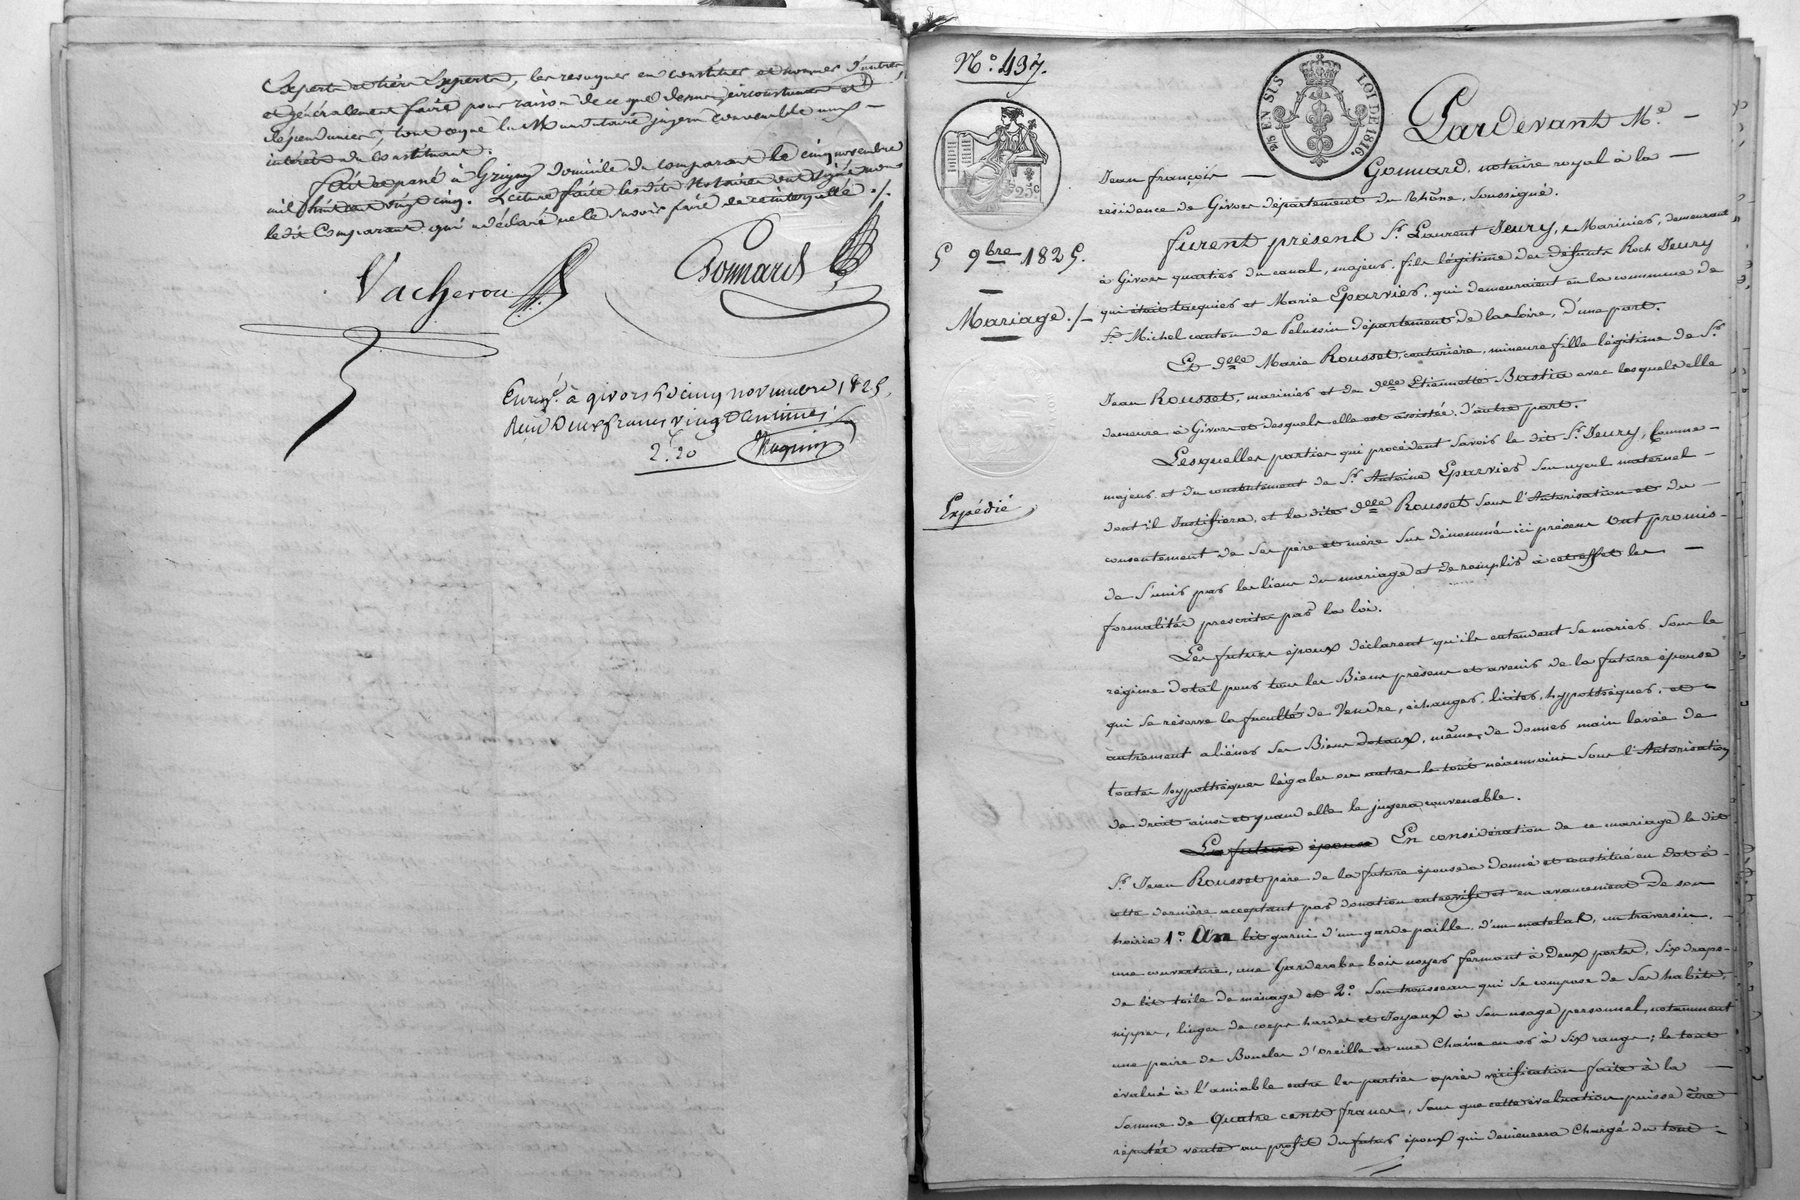 Experts et tiers Experts, les revoquer en constituer et nommer d'autres,
et généralement faire pour raison de ce que dessus circonstances et
dépendances, tout ce que le Mandataire jugera convenable aux
intérêts du Constituant.
fait et passé à Grigny domicile du comparant le cinq novembre
mil huit cent vingt cinq. Lecture faite les dits Notaires ont signé non
le dit Comparant qui a déclaré ne le savoir faire de ce interpellé ./.
Vacheron
Gonnard
Enreg.é à givors le cinq novembre 1825,
Reçu Deux francs vingt Centimes.
2f. 20
N.o 497.
5 9bre 1825.
Mariage ./.
Expédié
25 EN SUS
LOI DE 1816.
25c
Pardevant M.e
Jean françois Gonnard, notaire royal à la
résidence de Givors département du Rhône, soussigné.
furent présent S.r Laurent Jeury, Marinier, demeurant
à Givors quartier du canal, majeur, fils légitime des défunts Roch Jeury
qui était tuquier et Marie Eparvier, qui demeuraient en la commune de
St. Michel canton de Pelussin département de la Loire, d'une part.
Et Delle Marie Rousset, couturière, mineure fille légitime de S.r
Jean Rousset, marinier et de Delle Etiennette Bastia avec lesquels elle
demeure à Givors et desquels elle est assistée, d'autre part.
Lesquelles parties qui procèdent savoir le dit S.r Jeury, Comme
majeur et du consentement de S.r Antoine Eparvier son ayeul maternel
dont il Justifiera, et la dite Delle Rousset sous l'Autorisation et du
consentement de ses père et mère sus dénommés ici présens Ont promis
de s'unir par les liens du mariage et de remplir à cet effet les
formalités prescrites par la loi.
Les futurs époux déclarent qu'ils entendent se marier sous le
régime dotal pour tous les Biens présens et avenir de la future épouse
qui se réserve la faculté de Vendre, échanger, liciter, hypothéquer, et
autrement aliéner ses Biens dotaux, même de donner main levée de
toutes hypothèques légales ou autres le tout néanmoins sous l'Autorisation
de droit ainsi et quand elle le jugera convenable.
Les futurs épouse En considération de ce mariage le dit
S.r Jean Rousset père de la future épouse a donné et constitué en dot à
cette dernière acceptant par donation entrevifs et en avancement de son
hoirie 1.o Un lit garni d'un garde paille, d'un matelat, un traversin,
une couverture, une Garderobe bois noyer fermant à Deux portes, six draps
de lit toile de ménage et 2.o Son trousseau qui se compose de ses habits,
nippes, linges de corps hardes et Joyaux à son usage personnel, notamment
une paire de Boucles d'oreille et une Chaîne en or à six rangs ; le tout
évalué à l'amiable entre les parties après vérification faite à la
somme de Quatre cents francs, sans que cette évaluation puisse être
réputée vente au profit du futur époux qui demeurera Chargé du tout